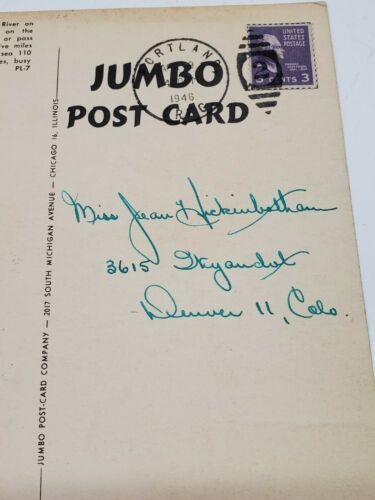 River on
on the
or pass
five miles
sea 110
es, busy
PL-7
PORTLAND
1946
OREG
2
UNITED STATES
POSTAGE
CENTS 3
JUMBO
POST CARD
Miss Jean Hickinbotham
3615 Wyandot
Denver 11, Colo.
JUMBO POST-CARD COMPANY — 2017 SOUTH MICHIGAN AVENUE — CHICAGO 16, ILLINOIS